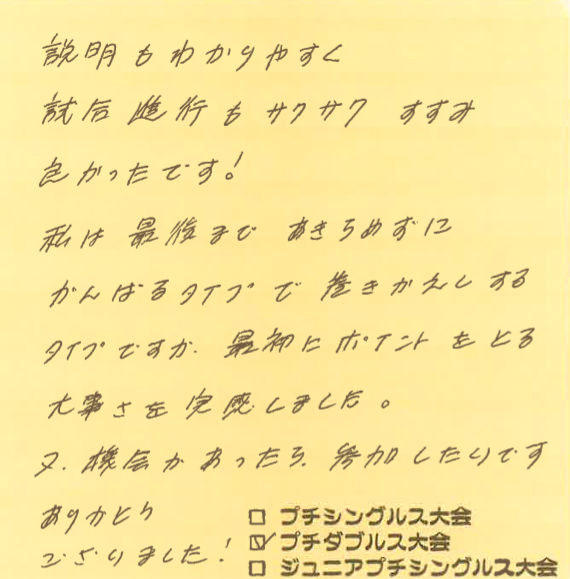 説明もわかりやすく
試合進行もサクサクすすみ
良かったです!
私は最後まであきらめずに
がんばるタイプで巻きかえしする
タイプですが、最初にポイントをとる
大事さを実感しました。
又、機会があったら、参加したいです
ありがとう
ございました!
□ プチシングルス大会
☑ プチダブルス大会
□ ジュニアプチシングルス大会